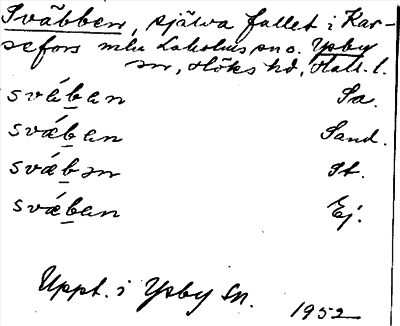 Sväbben, själva fallet i Kar-
sefors mln Laholms sn o. Ysby
sn, Höks hd, Hall. l.
sväban Sa.
sväban Sand.
sväbən St.
sväban Ej.
Uppt. i Ysby sn.
1952